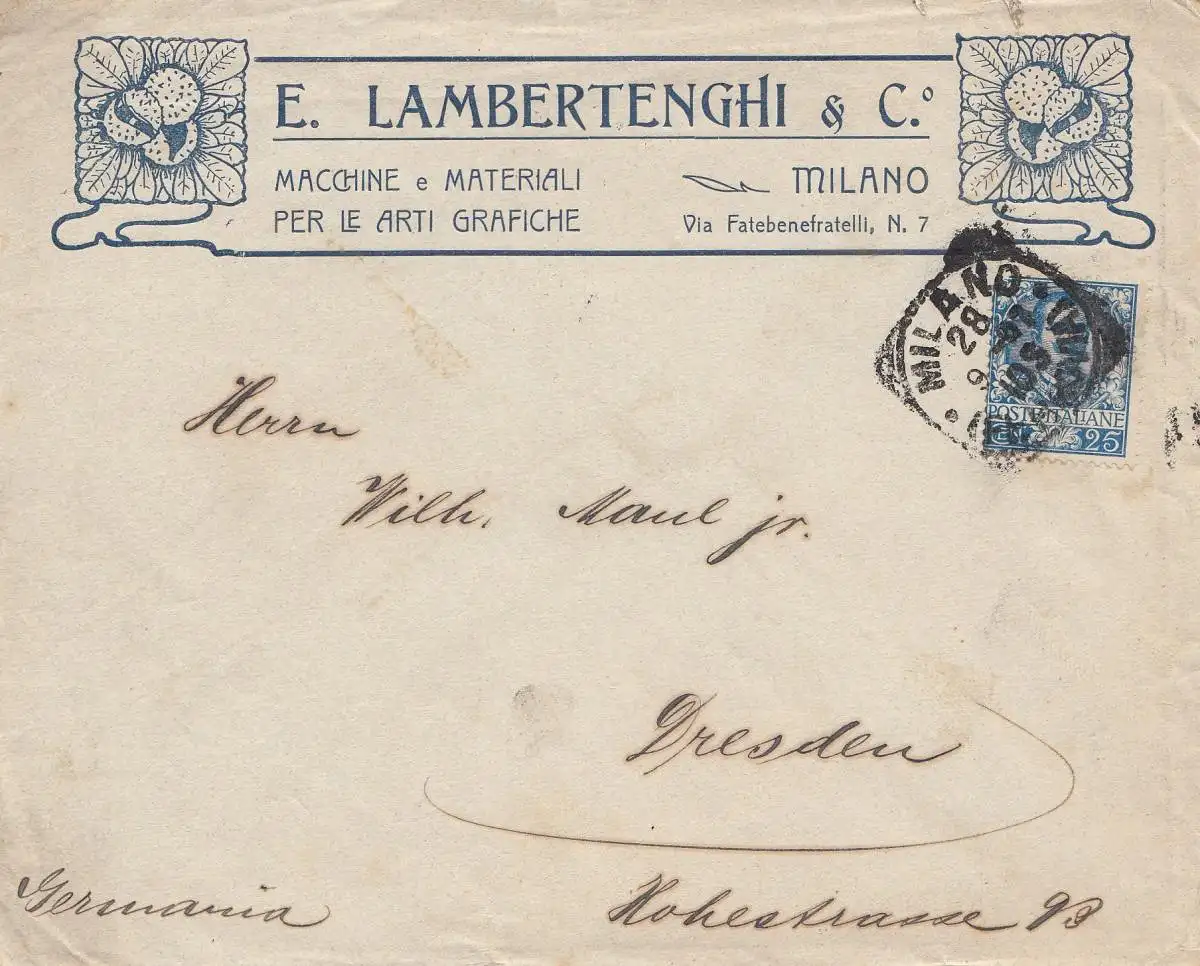 E. LAMBERTENGHI & C.º
MACCHINE e MATERIALI
PER LE ARTI GRAFICHE
MILANO
Via Fatebenefratelli, N. 7
MILANO
28
9
POSTE ITALIANE
CENT. 25
Herrn
Wilh. Maul jr.
Dresden
Germania
Hohestrasse 93